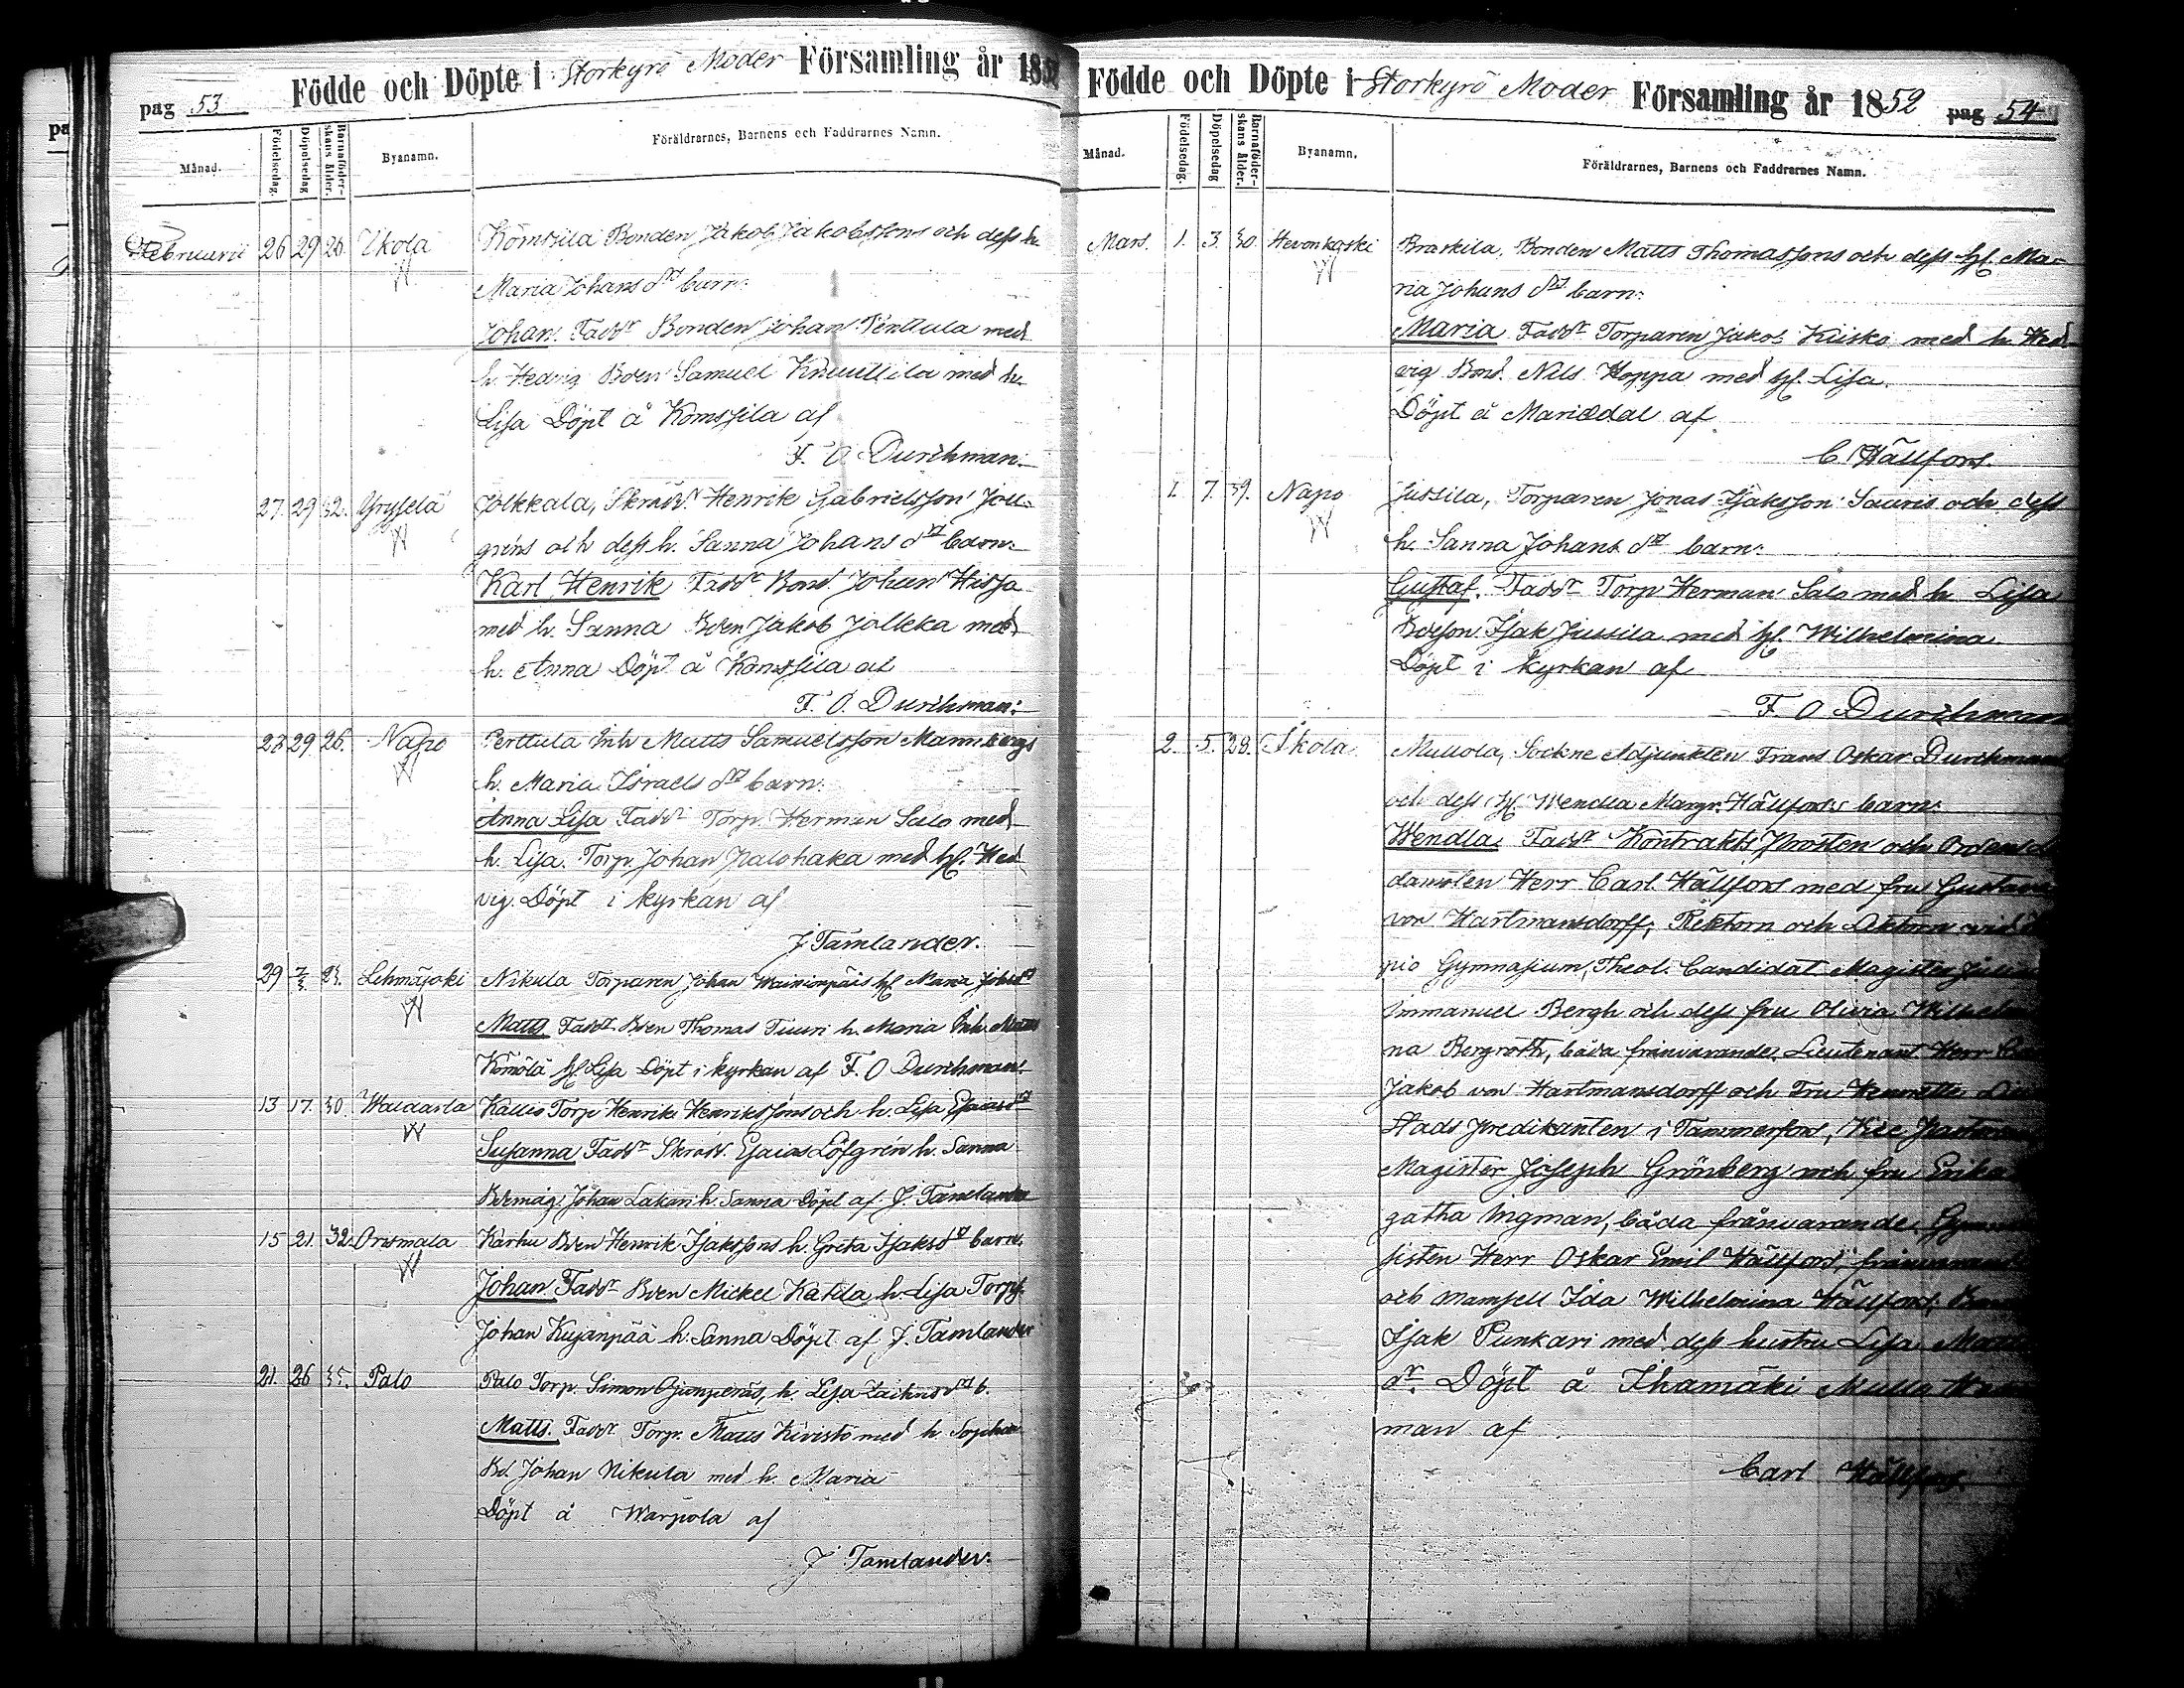 pag 53
Födde och Döpte i Storkyrö Moder Församling år 185
Månad.
Födelsedag.
Döpelsedag
Barnaföder-
skans ålder.
Byanamn.
Föräldrarnes, Barnens och Faddrarnes Namn.
Februarii 26 29 26 Ikola Bonden Jakob Jakobssons och dess h.
Maria Johans dr barn:
Johan. Faddr Bonden Johan Penttula med
h. Hedvig Bden Samuel med h.
Lisa Döpt å af
F. O. Durchman.
27. 29 32. Skrädd. Henrik Gabrielsson Joll-
grens och dess h. Sanna Johans dr barn:
Karl Henrik Faddr Bond. Johan Hissa
med h. Sanna Bden Jakob Jolkka med
h. Anna Döpt å af
F. O. Durchman:
23 29. 26. Napo Perttula Inh Matts Samuelsson Mannbergs
h. Maria Israels dr barn:
Anna Lisa Faddr Torp. Herman Salo med
h. Lisa. Torp. Johan Palohaka med hf. Hed
vig. Döpt i kyrkan af
J. Tamlander.
29 7/3 23. Lehmäjoki Nikula Torparen Johan Wainionpäis hf Maria
Matts Faddr Bden Thomas Tuuri h. Maria Inh. Matts
Kömölä hf Lisa Döpt i kyrkan af F. O Durchman.
13 17. 30. Waldarla Kallio Torp Henrik Henrikssons och h. Lisa Esaias dr
Susanna Faddr Skrädd. Esaias Löfgrén h. Sanna
Bdemåg. Johan Lakari h. Sanna Döpt af J. Tamlander
15 21. 32. Orismala Karhu Bden Henrik Isakssons h. Greta Isaks dr barn.
Johan. Faddr Bden Mickel Katila h. Lisa Torp.
Johan Kujanpää h. Sanna Döpt af J. Tamlander
21. 26 35. Palo Palo Torp. Simon h. Lisa b.
Matts. Faddr Torp. Matts Kivistö med h. Sophia
Bd. Johan Nikula med h. Maria
Döpt å Warpola af
J Tamlander.
Födde och Döpte i Storkyrö Moder Församling år 1852 pag 54
Månad.
Födelsedag.
Döpelsedag
Barnaföder-
skans ålder.
Byanamn.
Föräldrarnes, Barnens och Faddrarnes Namn.
Mars. 1. 3. 30. Hevonkoski Braskila, Bonden Matts Thomassons och dess hf. Ma-
ria Johans dr barn:
Maria Faddr Torparen Jakob Kiisko med h. Hed-
vig Bond. Nils Hoppa med hf. Lisa.
Döpt å Mariedal af
C. Hällfors.
1. 7. 39. Napo Jussila, Torparen Jonas Isaksson Sauris och dess
h. Sanna Johans dr barn:
Gustaf. Faddr Torp Herman Salo med h Lisa
Bdeson Isak Jussila med hf. Wilhelmina.
Döpt i kyrkan af
F. O Durchman
2. 5. 28. Ikola Mullola, Sockne Adjunkten Frans Oskar Durchmans
och dess hf. Wendla Margr. Hällfors's barn:
Wendla. Faddr Kontrakts Prosten och Ordens
Herr Carl Hällfors med fru Gustava
von Hartmansdorff; Rektorn och Lektorn vid
pio Gymnasium, Theol. Candidat Magister
Immanuel Bergh och dess fru Olivia Wilhelmi
na Bergroth, båda frånvarande, Lieutenant Herr
Jakob von Hartmansdorff och Fru Henriette
Stads predikanten i Tammerfors, Vice Pastorn
Magister Joseph Grönberg och fru Erika
gatha Ingman, båda frånvarande. Gymna
sisten Herr Oskar Emil Hällfors, frånvarande
och Mamsell Ida Wilhelmina Hällfors;
Isak Punkari med dess hustru Lisa
dr. Döpt å Ihamäki Mulla
man af
Carl Hällfors.